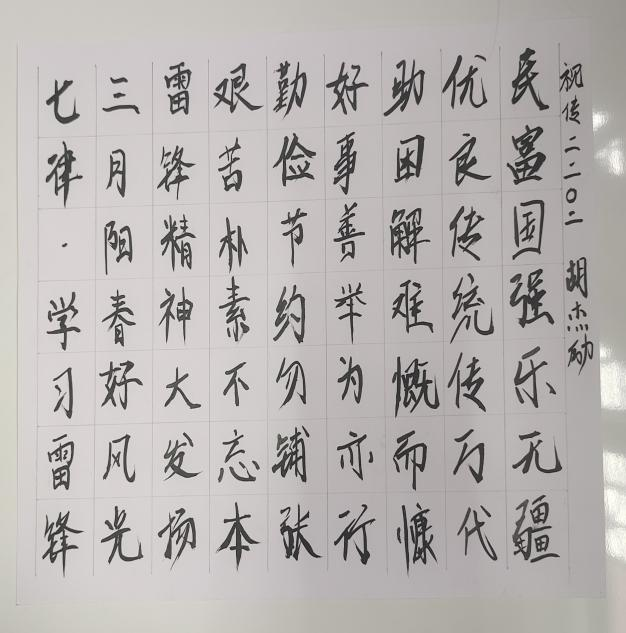 七律·学习雷锋
三月阳春好风光
雷锋精神大发扬
艰苦朴素不忘本
勤俭节约勿铺张
好事善举为亦行
助困解难慨而慷
优良传统传万代
民富国强乐无疆
祝传二二〇二 胡杰